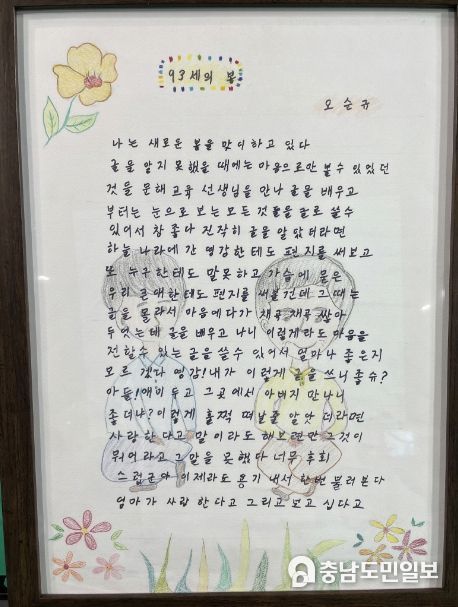 93세의 봄
오순규
나는 새로운 봄을 맞이하고 있다
글을 알지 못했을 때에는 마음으로만 볼수 있었던
것을 문해 교육 선생님을 만나 글을 배우고
부터는 눈으로 보는 모든 것들을 말로 쓸수
있어서 참 좋다 진작히 글을 알았더라면
하늘 나라에 간 영감한테도 편지를 써보고
또 누구한테도 말못하고 가슴에 묻은
우리 큰애한테도 편지를 써볼건데 그때는
글을 몰라서 마음에다가 채곡 채곡 쌓아
두었는데 글을 배우고 나니 이렇게라도 마음을
전할수 있는 글을 쓸수 있어서 얼마나 좋은지
모르 겠다 영감!내가 이렇게 글을 쓰니 좋슈?
아들!애미 두고 그곳에서 아버지 만나니
좋더냐?이렇게 훌쩍 떠날줄 알앗 더라면
사랑 한다고 말 이라도 해보련만 그것이
뭐어라고 그말을 못했다 너무 후회
스럽군아 이제라도 용기 내서 한번 불러본다
엄마가 사랑 한다고 그리고 보고 십다고
충남도민일보